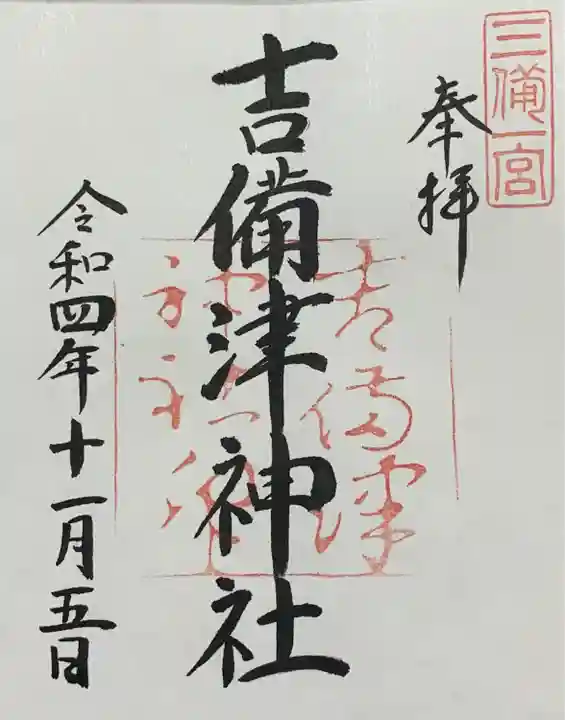 三備一宮
奉拝
吉備津神社
令和四年十一月五日
吉備津